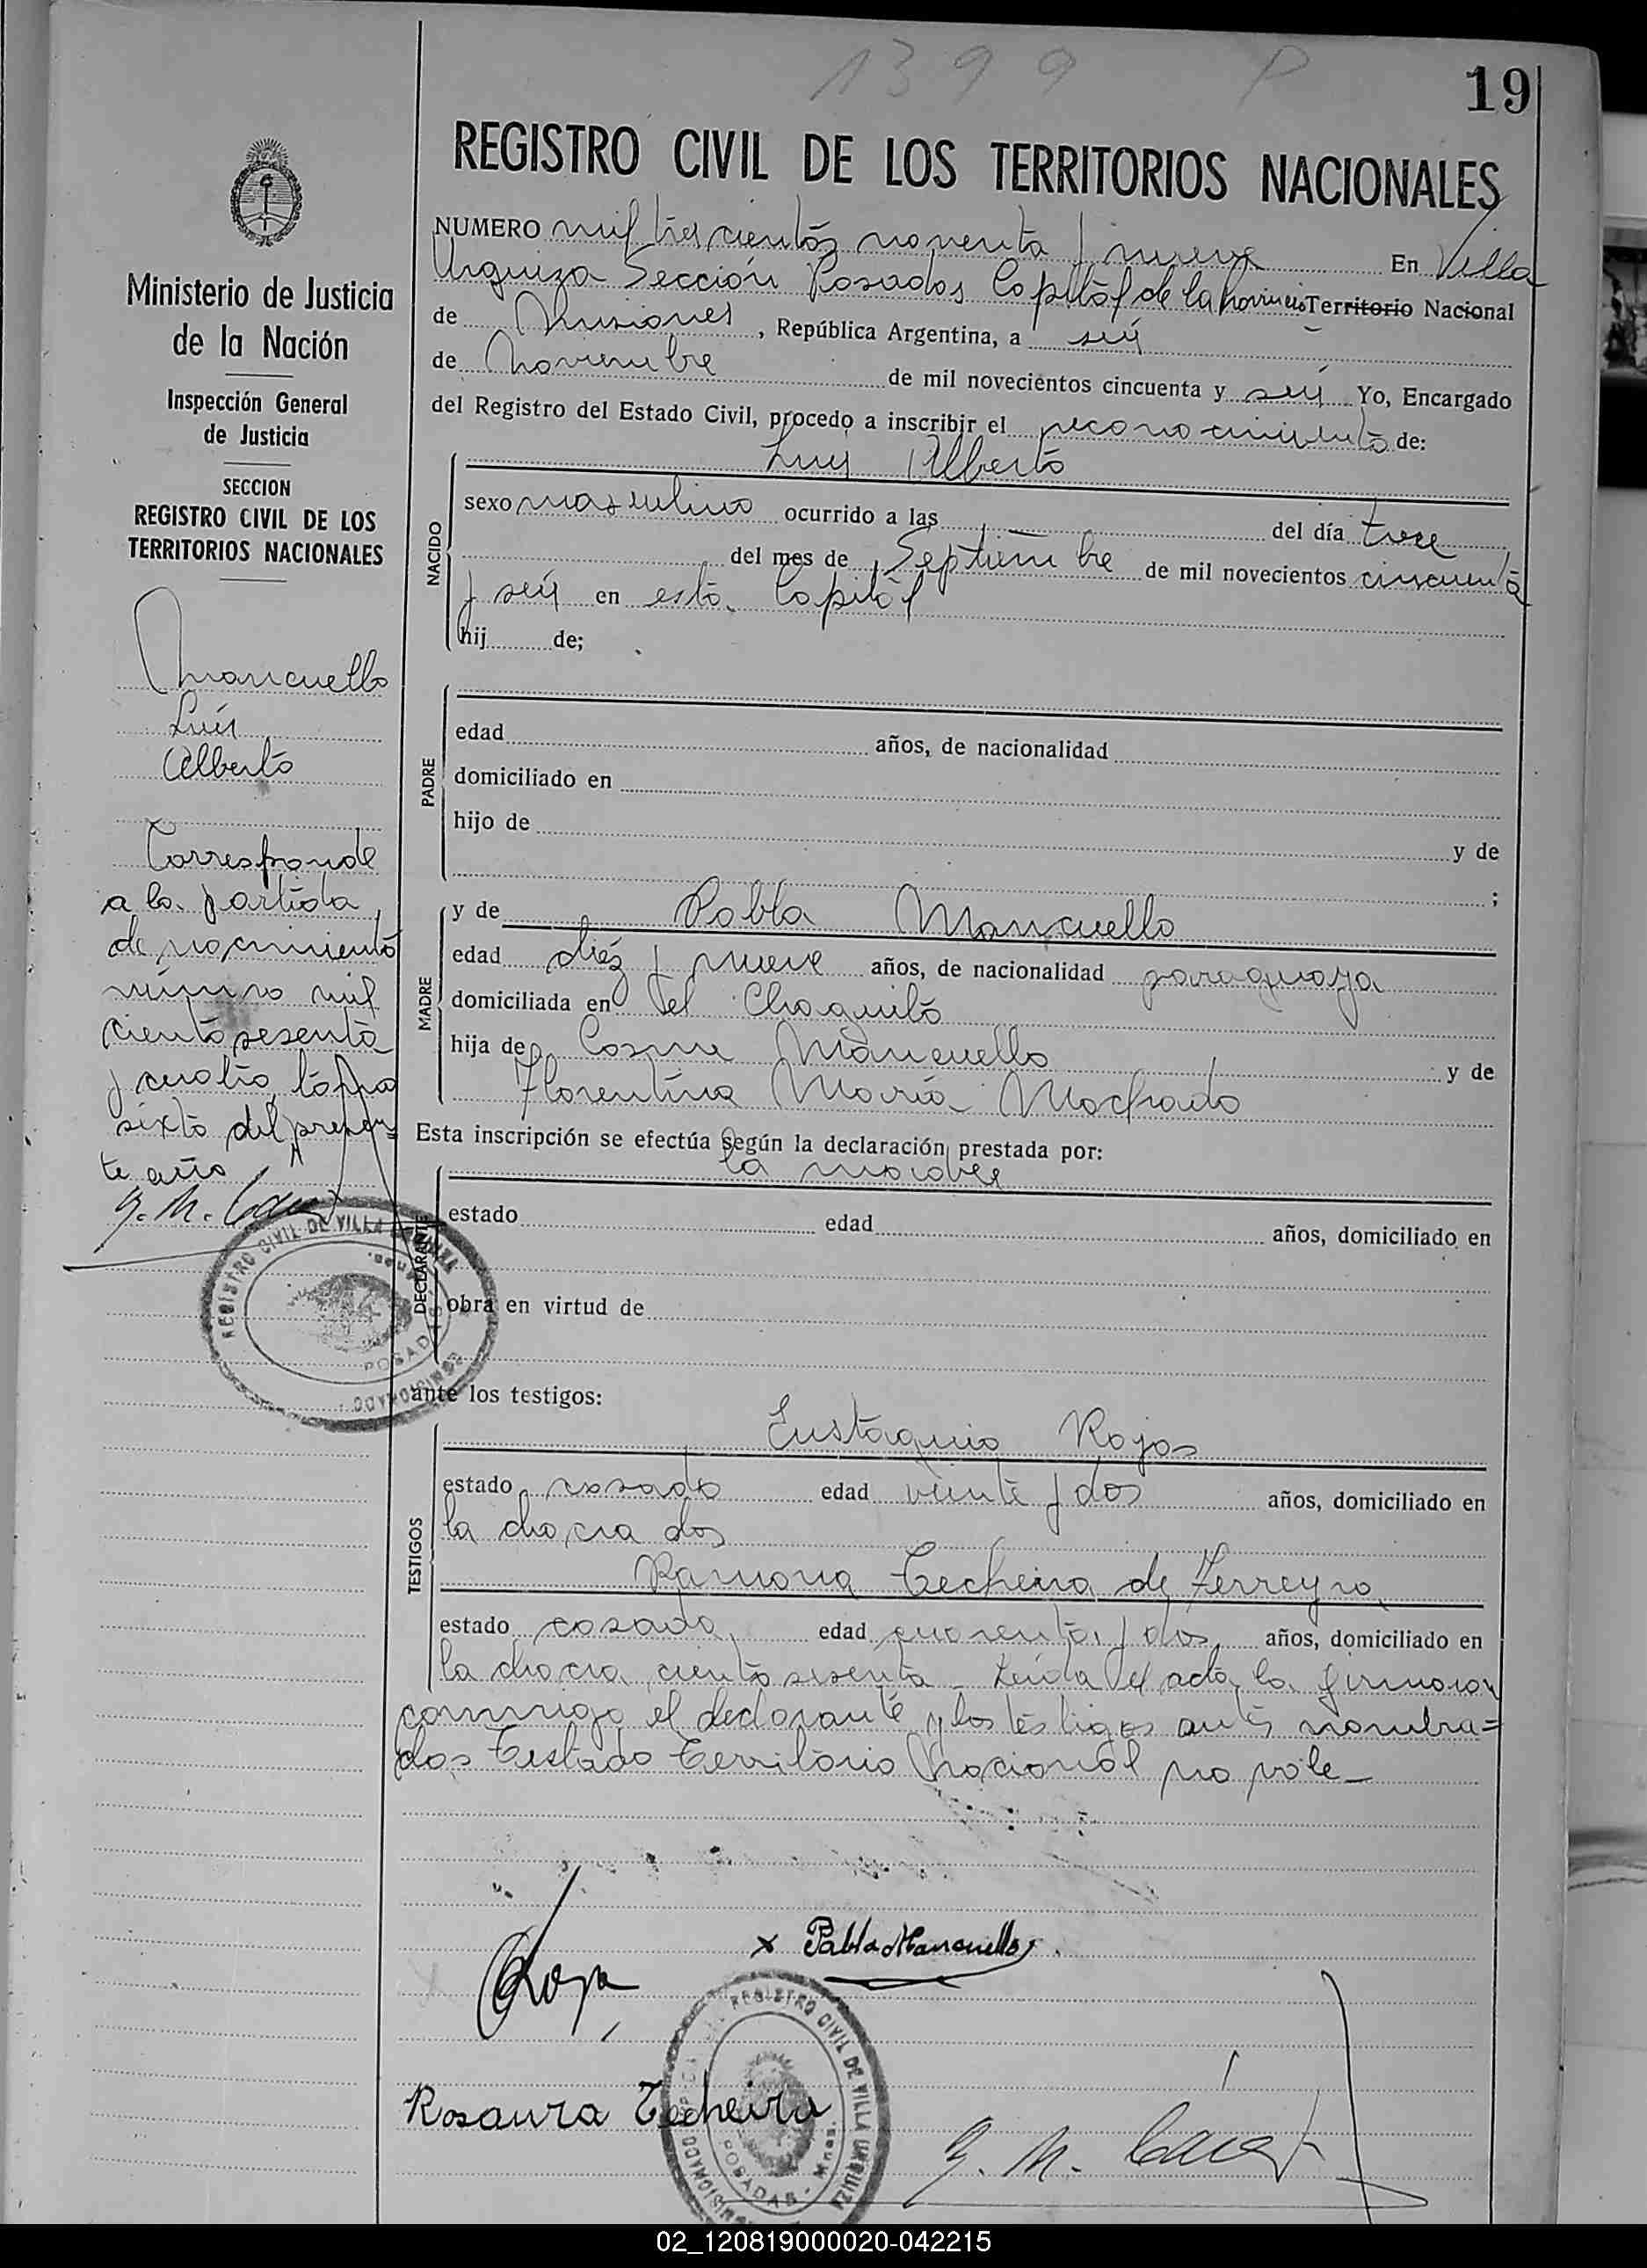 1399 P
19
REGISTRO CIVIL DE LOS TERRITORIOS NACIONALES
NUMERO mil trescientos noventa y nueve En Villa
Urquiza Sección Posadas Capital de la Provincia Territorio Nacional
de Misiones, República Argentina, a seis
de Noviembre de mil novecientos cincuenta y seis Yo, Encargado
del Registro del Estado Civil, procedo a inscribir el reconocimiento de:
NACIDO
Luis Alberto
sexo masculino ocurrido a las del día trece
del mes de Septiembre de mil novecientos cincuenta
y seis en esta Capital
hij de;
PADRE
edad años, de nacionalidad
domiciliado en
hijo de y de
;
MADRE
y de Pabla Mancuello
edad diez y nueve años, de nacionalidad paraguaya
domiciliada en el Chaquito
hija de Cosme Mancuello y de
Florentina María Machado
Esta inscripción se efectúa según la declaración prestada por:
DECLARANTE
la madre
estado edad años, domiciliado en
obra en virtud de
ante los testigos:
TESTIGOS
Eustaquio Rojas
estado casado edad veinte y dos años, domiciliado en
la chacra dos
Ramona Techeira de Ferreyra
estado casada edad cuarenta y dos años, domiciliado en
la chacra ciento sesenta. Leída el acta la firmaron
conmigo el declarante y los testigos antes nombra=
dos Testado Territorio Nacional no vale
Ministerio de Justicia
de la Nación
Inspección General
de Justicia
SECCION
REGISTRO CIVIL DE LOS
TERRITORIOS NACIONALES
Mancuello
Luis
Alberto
Corresponde
a la partida
de nacimiento
número mil
ciento sesenta
y cuatro, tomo
sixto del presen
te año
REGISTRO CIVIL DE VILLA URQUIZA
POSADAS
x Pabla Mancuello
Rojas
Rosaura Techeira
REGISTRO CIVIL DE VILLA URQUIZA
POSADAS - Mnes.
02_120819000020-042215